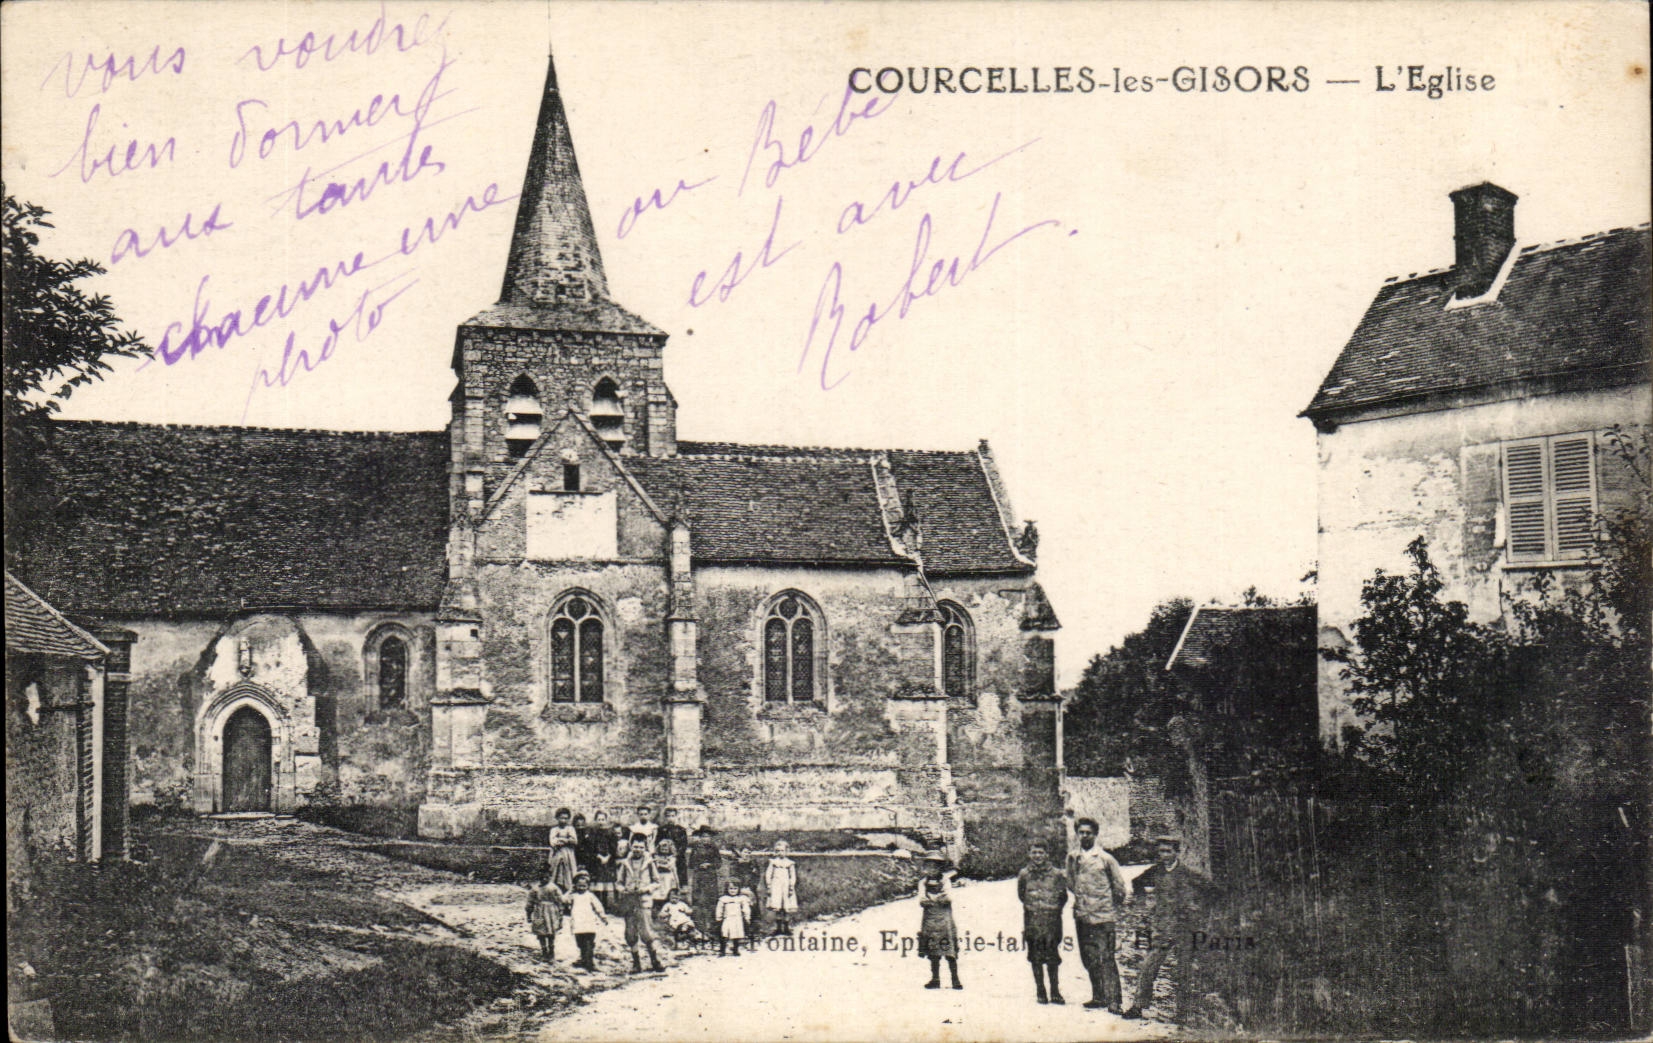 COURCELLES-les-GISORS — L'Eglise
vous voudrez
bien donner
aux tantes
chacune une
photo
ou Bébé
est avec
Robert.
Fontaine, Epicerie-tabacs Paris